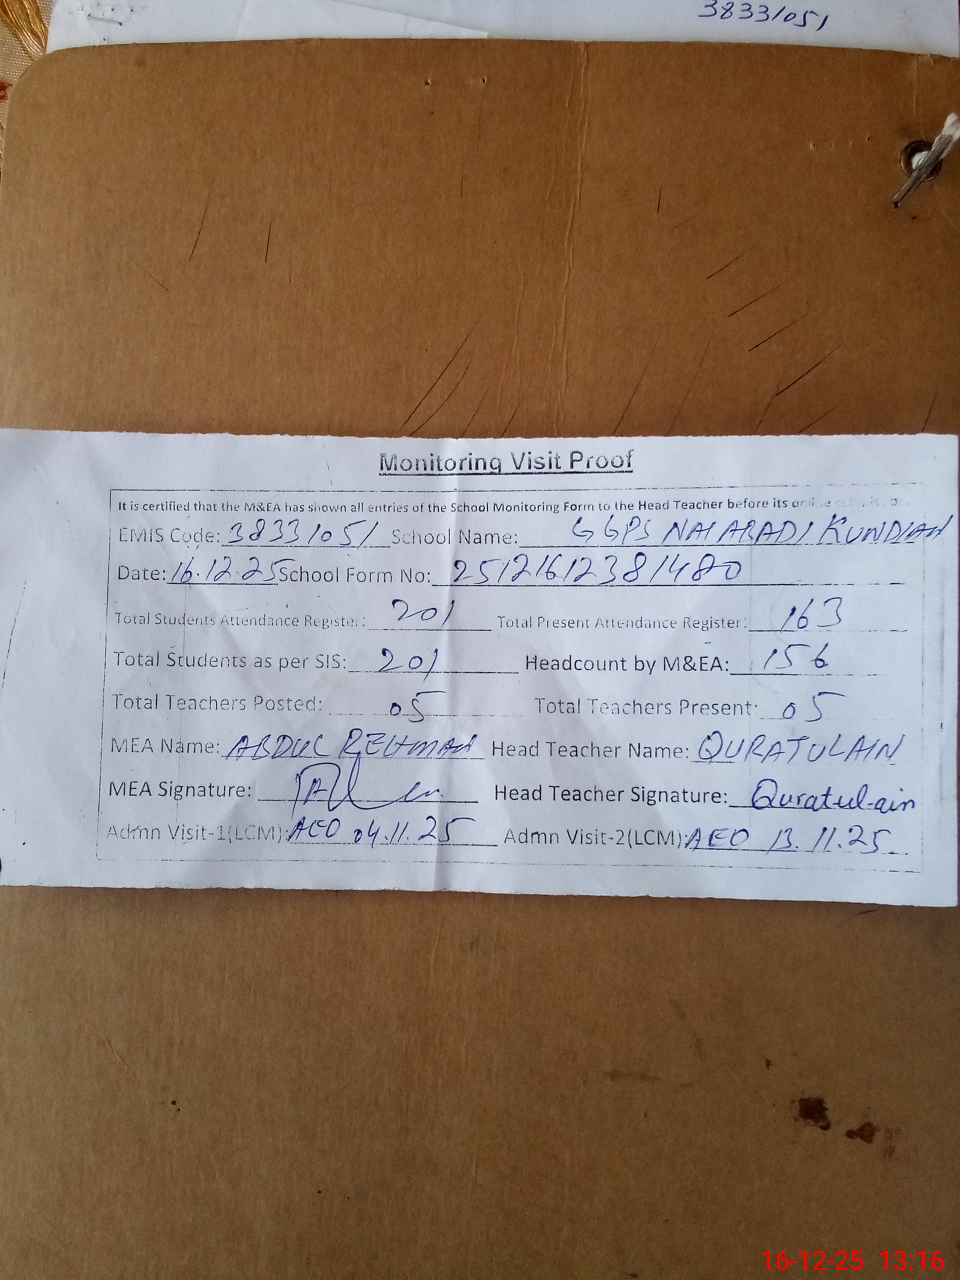 38331051
Monitoring Visit Proof
It is certified that the M&EA has shown all entries of the School Monitoring Form to the Head Teacher before its
EMIS Code: 38331051 School Name: GGPS NAI ABADI KUNDIAN
Date: 16.12.25 School Form No: 25121612381480
Total Students Attendance Register: 201 Total Present Attendance Register: 163
Total Students as per SIS: 201 Headcount by M&EA: 156
Total Teachers Posted: 05 Total Teachers Present: 05
MEA Name: ABDUL REHMAN Head Teacher Name: QURATULAIN
MEA Signature: Head Teacher Signature: Quratul-ain
Admn Visit-1(LCM): AEO 04.11.25 Admn Visit-2(LCM): AEO 13.11.25
16-12-25 13:16